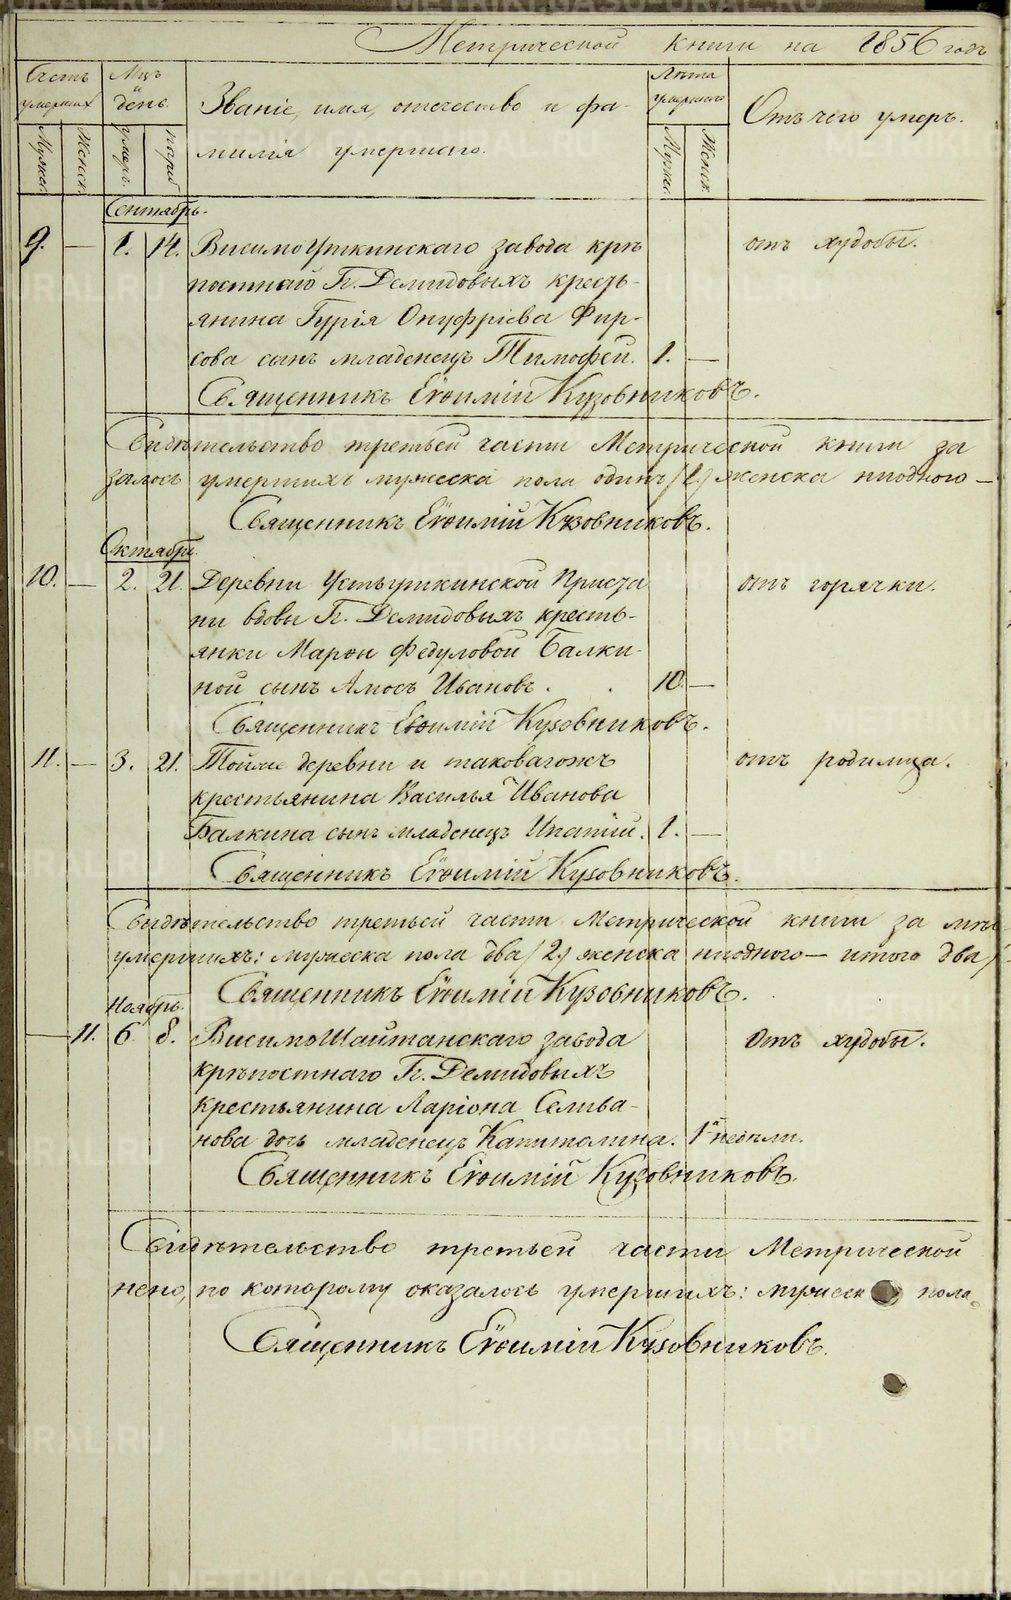 Метрической книги на 1856 годъ
Счетъ умершихъ
Мцъ и день.
Званіе, имя, отечество и фамилія умершаго.
Лѣта умершаго
Отъ чего умеръ.
Мужск. Женск. умеръ. погреб Мужск. Женск.
Сентябрь.
9. — 1. 14. Висимо Уткинскаго завода крѣ отъ худобы.
постнаго Гг. Демидовыхъ кресть-
янина Гурія Онуфріева Фир-
сова сынъ младенецъ Тимофей. 1. —
Священникъ Евѳимій Кузовниковъ.
Свидѣтельство третьей части Метрической книги за
залось умершихъ мужеска пола одинъ /1./ женска ниодного —
Священникъ Евѳимій Кузовниковъ.
Октябрь.
10. — 2. 21. Деревни Устьуткинской Приста отъ горячки.
ни вдовы Гг. Демидовыхъ кресть-
янки Марѳы Федуловой Балки-
ной сынъ Амосъ Ивановъ. 10. —
Священникъ Евѳимій Кузовниковъ.
11. — 3. 21. Тойже деревни и таковагожъ отъ родимца.
крестьянина Василья Иванова
Балкина сынъ младенецъ Ипатій. 1. —
Священникъ Евѳимій Кузовниковъ.
Свидѣтельство третьей части Метрической книги за
умершихъ: мужеска пола два /2./ женска ниодного — итого два /
Священникъ Евѳимій Кузовниковъ.
Ноябрь.
— 11. 6. 8. Висимо Шайтанскаго завода Отъ худобы.
крѣпостнаго Гг. Демидовыхъ
крестьянина Ларіона Сельва-
нова дочь младенецъ Капитолина. 1й недѣли.
Священникъ Евѳимій Кузовниковъ.
Свидѣтельство третьей части Метрической
нено, по которому оказалось умершихъ: мужеск пола
Священникъ Евѳимій Кузовниковъ.
METRIKI.GASO-URAL.RU